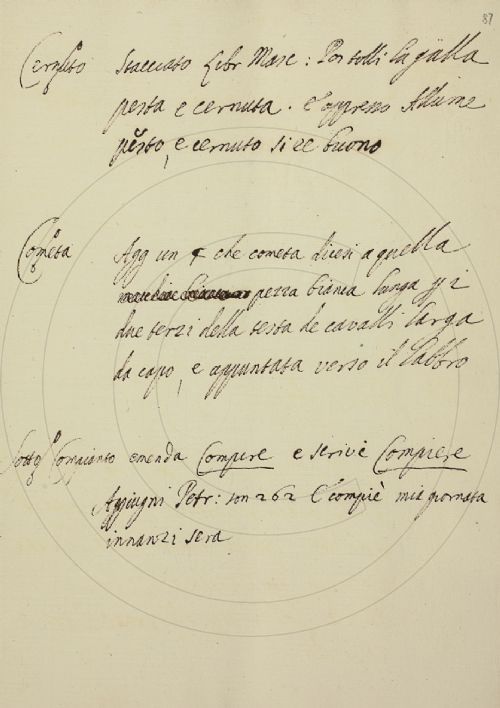 87
Cernuto Stacciato Libr. Masc: Poi tolli la galla
pesta e cernuta. E appresso Allume
pesto, e cernuto si ce buono
Cometa Agg un che cometa dicesi a quella
pezza bianca lunga
due terzi della testa de cavalli larga
da capo, e appuntata verso il labbro
Sotto Compianto emenda Compere e scrive Compiere
Aggiugni Petr: son 262 E compiè mia giornata
innanzi sera